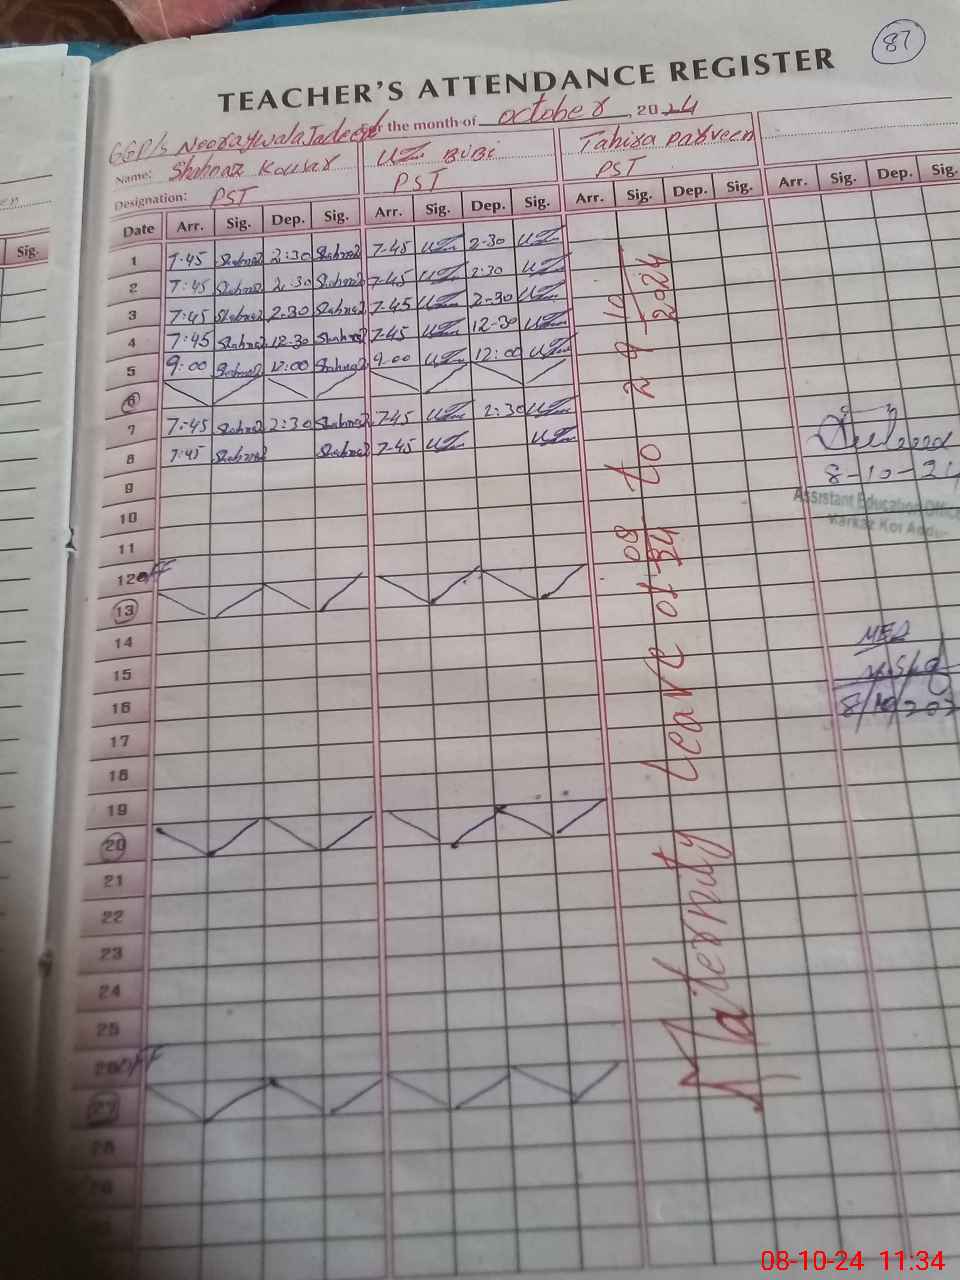 87
TEACHER'S ATTENDANCE REGISTER
GGP/s
for the month of october, 2024
Name: Shahnaz Kousar UZ BiBi Tahira Parveen
Designation: PST PST PST
Date Arr. Sig. Dep. Sig. Arr. Sig. Dep. Sig. Arr. Sig. Dep. Sig. Arr. Sig. Dep. Sig.
Sig.
1 7:45 Shahnaz 2:30 Shahnaz 7-45 UZ 2-30 UZ
2 7:45 Shahnaz 2:30 Shahnaz 7-45 UZ 2:30 UZ
3 7:45 Shahnaz 2-30 Shahnaz 7-45 UZ 2-30 UZ
4 7:45 Shahnaz 12-30 Shahnaz 7-45 UZ 12-30 UZ
5 9:00 Shahnaz 12:00 Shahnaz 9-00 UZ 12:00 UZ
6
7 7:45 Shahnaz 2:30 Shahnaz 7-45 UZ 2:30 UZ
8 7:45 Shahnaz Shahnaz 7-45 UZ UZ
9
10
11
12 off
13
14
15
16
17
18
19
20
21
22
23
24
25
26 off
27
28
Maternity Leave to
8-10-24
Assistant Education Officer
MEA
8/10/202
08-10-24 11:34